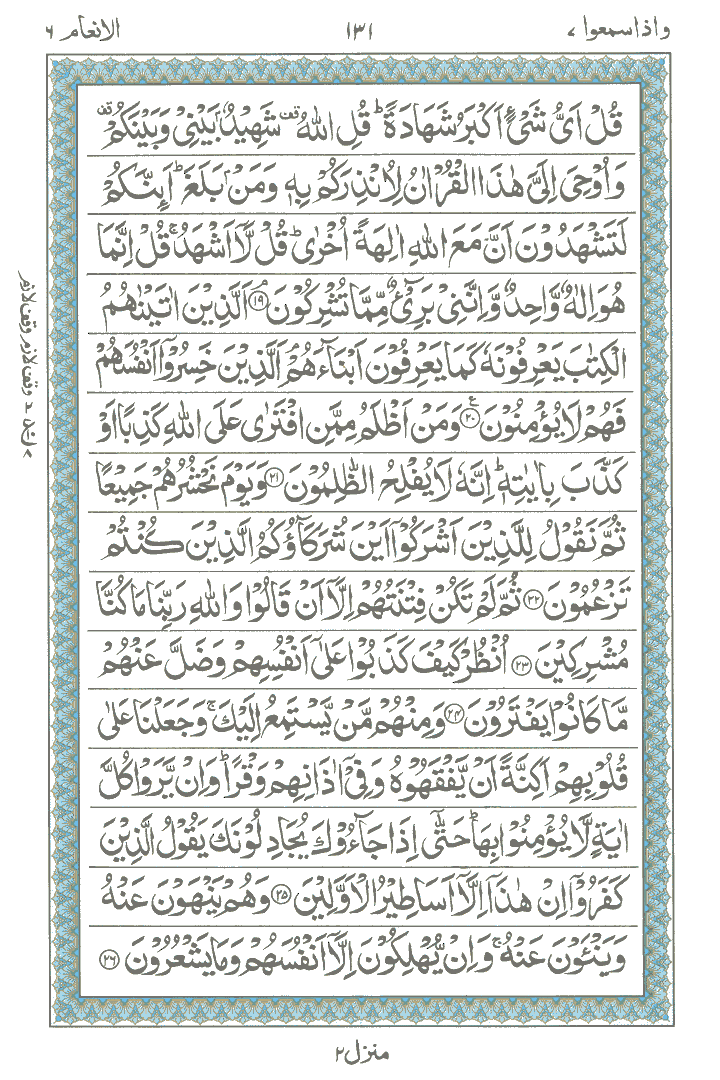 واذاسمعوا ٧
١٣١
الانعام ٦
قُلْ اَىُّ شَىْءٍ اَكْبَرُ شَهَادَةً ؕ قُلِ اللّٰهُ ۟ۙ شَهِيْدٌۢ بَيْنِىْ وَبَيْنَكُمْ ۟
وَاُوْحِىَ اِلَىَّ هٰذَا الْقُرْاٰنُ لِاُنْذِرَكُمْ بِهٖ وَمَنْۢ بَلَغَ ؕ اَئِنَّكُمْ
لَتَشْهَدُوْنَ اَنَّ مَعَ اللّٰهِ اٰلِهَةً اُخْرٰى ؕ قُلْ لَّاۤ اَشْهَدُ ۚ قُلْ اِنَّمَا
هُوَ اِلٰهٌ وَّاحِدٌ وَّاِنَّنِىْ بَرِىْٓءٌ مِّمَّا تُشْرِكُوْنَ ۘ ﴿١٩﴾ اَلَّذِيْنَ اٰتَيْنٰهُمُ
الْكِتٰبَ يَعْرِفُوْنَهٗ كَمَا يَعْرِفُوْنَ اَبْنَآءَهُمْ ۘ اَلَّذِيْنَ خَسِرُوْۤا اَنْفُسَهُمْ
فَهُمْ لَا يُؤْمِنُوْنَ ﴿٢٠﴾ ع وَمَنْ اَظْلَمُ مِمَّنِ افْتَرٰى عَلَى اللّٰهِ كَذِبًا اَوْ
كَذَّبَ بِاٰيٰتِهٖ ؕ اِنَّهٗ لَا يُفْلِحُ الظّٰلِمُوْنَ ﴿٢١﴾ وَيَوْمَ نَحْشُرُهُمْ جَمِيْعًا
ثُمَّ نَقُوْلُ لِلَّذِيْنَ اَشْرَكُوْۤا اَيْنَ شُرَكَآؤُكُمُ الَّذِيْنَ كُنْتُمْ
تَزْعُمُوْنَ ﴿٢٢﴾ ثُمَّ لَمْ تَكُنْ فِتْنَتُهُمْ اِلَّاۤ اَنْ قَالُوْا وَاللّٰهِ رَبِّنَا مَا كُنَّا
مُشْرِكِيْنَ ﴿٢٣﴾ اُنْظُرْ كَيْفَ كَذَبُوْا عَلٰٓى اَنْفُسِهِمْ وَضَلَّ عَنْهُمْ
مَّا كَانُوْا يَفْتَرُوْنَ ﴿٢٤﴾ وَمِنْهُمْ مَّنْ يَّسْتَمِعُ اِلَيْكَ ۚ وَجَعَلْنَا عَلٰى
قُلُوْبِهِمْ اَكِنَّةً اَنْ يَّفْقَهُوْهُ وَفِىْۤ اٰذَانِهِمْ وَقْرًا ؕ وَاِنْ يَّرَوْا كُلَّ
اٰيَةٍ لَّا يُؤْمِنُوْا بِهَا ؕ حَتّٰٓى اِذَا جَآءُوْكَ يُجَادِلُوْنَكَ يَقُوْلُ الَّذِيْنَ
كَفَرُوْۤا اِنْ هٰذَاۤ اِلَّاۤ اَسَاطِيْرُ الْاَوَّلِيْنَ ﴿٢٥﴾ وَهُمْ يَنْهَوْنَ عَنْهُ
وَيَنْئَوْنَ عَنْهُ ۚ وَاِنْ يُّهْلِكُوْنَ اِلَّاۤ اَنْفُسَهُمْ وَمَا يَشْعُرُوْنَ ﴿٢٦﴾
منزل٢